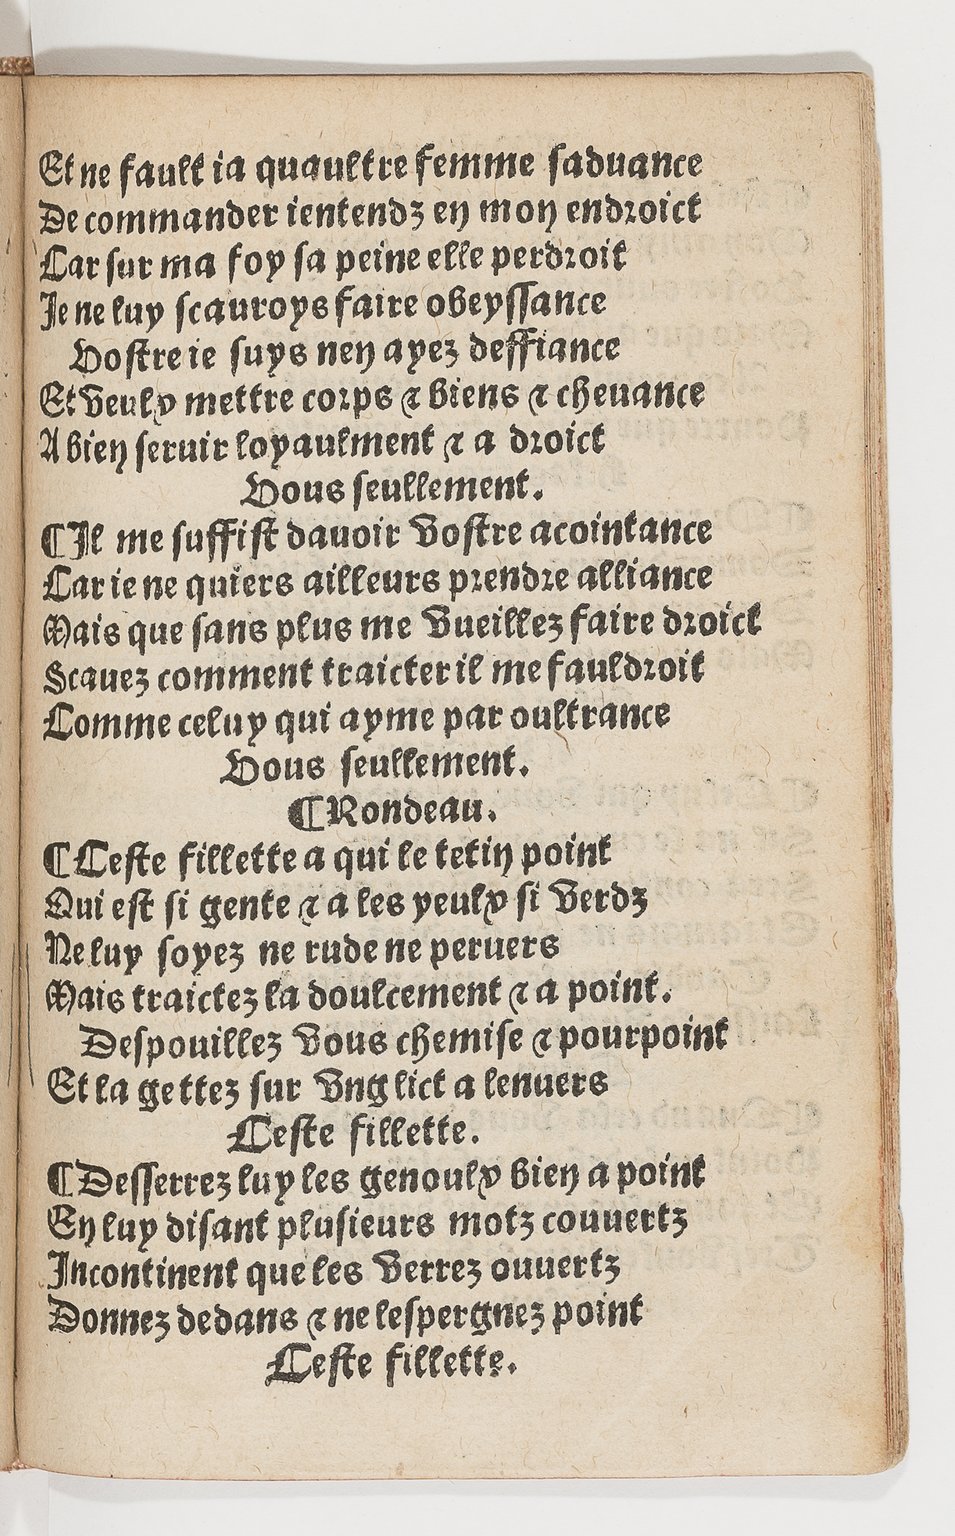 Et ne fault ia quaultre femme saduance
De commander ientendz en mon endroict
Car sur ma foy sa peine elle perdroit
Je ne luy scauroys faire obeyssance
Vostre ie suys nen ayez deffiance
Et veulx mettre corps & biens & cheuance
A bien seruir loyaulment & a droict
Vous seullement.
¶Il me suffist dauoir vostre acointance
Car ie ne quiers ailleurs prendre alliance
Mais que sans plus me vueillez faire droict
Scauez comment traicter il me fauldroit
Comme celuy qui ayme par oultrance
Vous seullement.
¶Rondeau.
¶Ceste fillette a qui le tetin point
Qui est si gente & a les yeulx si verdz
Ne luy soyez ne rude ne peruers
Mais traictez la doulcement & a point.
Despouillez vous chemise & pourpoint
Et la gettez sur vng lict a lenuers
Ceste fillette.
¶Desserrez luy les genoulx bien a point
En luy disant plusieurs motz couuertz
Incontinent que les verrez ouuertz
Donnez dedans & ne lespergnez point
Ceste fillette.